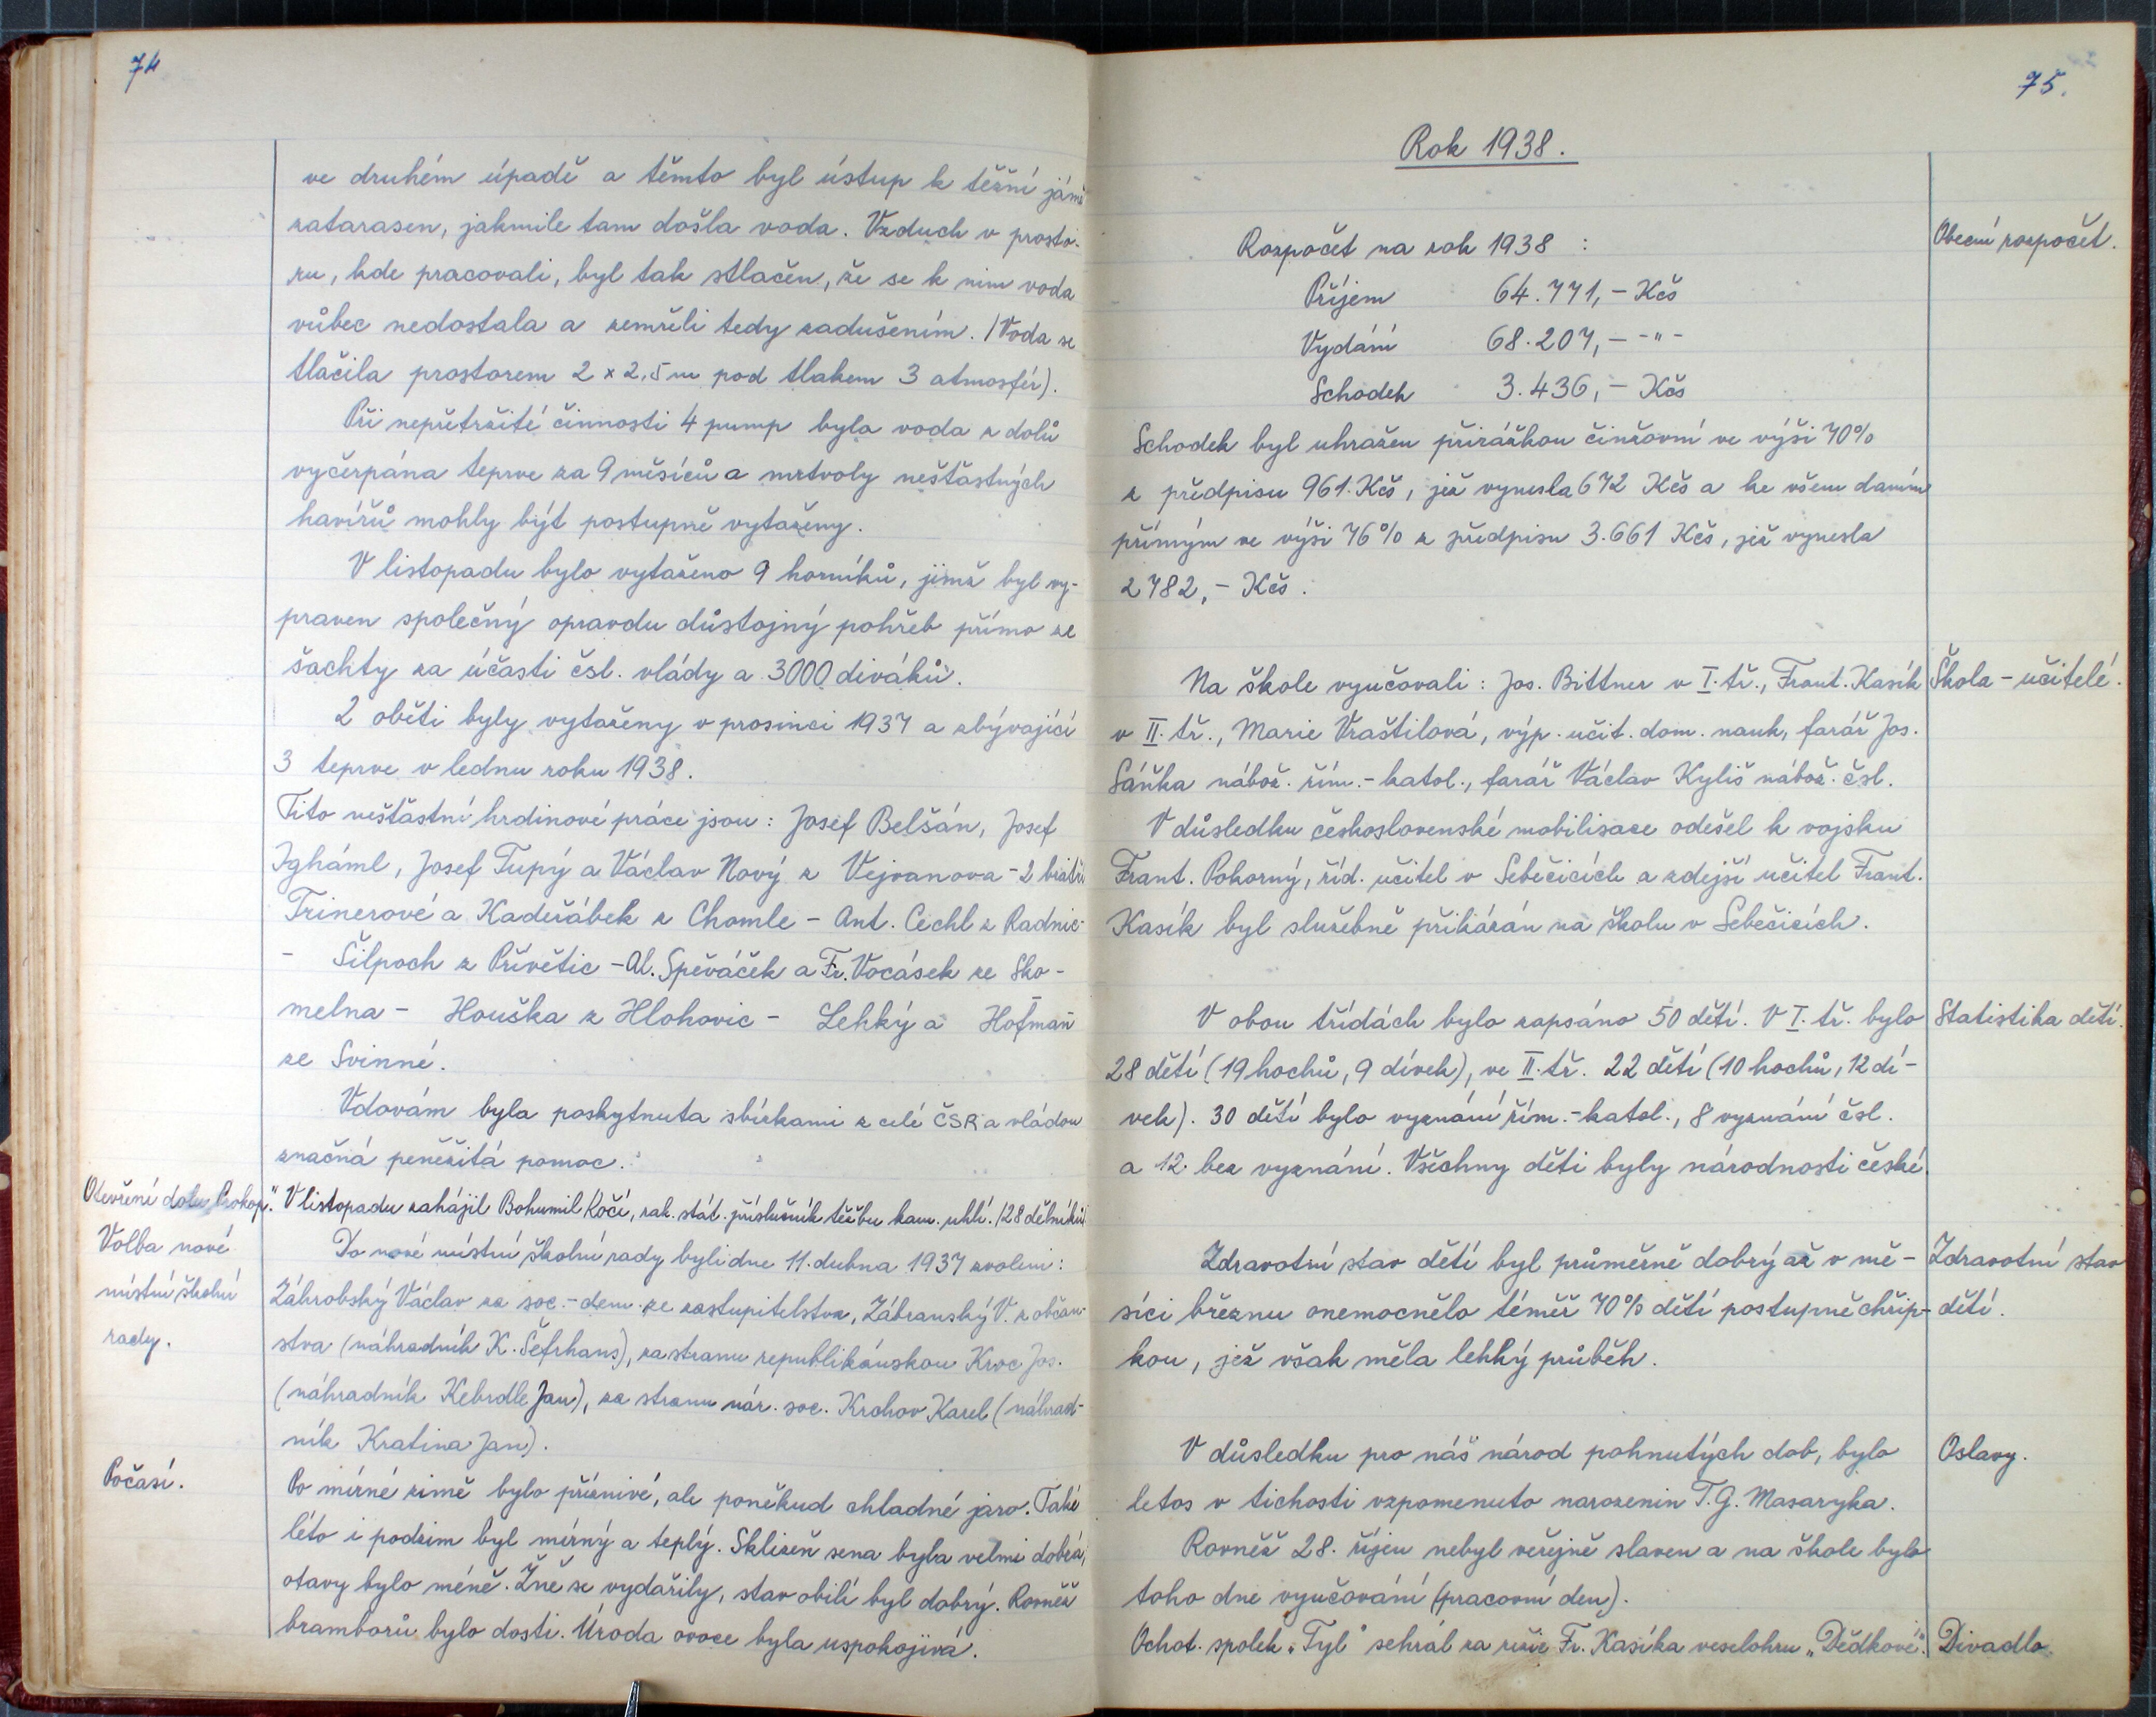 74
ve druhém úpadě a těmto byl ústup k těžní jámě
zatarasen, jakmile tam došla voda. Vzduch v prosto-
ru, kde pracovali, byl tak stlačen, že se k nim voda
vůbec nedostala a zemřeli tedy zadušením. /Voda se
tlačila prostorem 2 x 2,5 m pod tlakem 3 atmosfér).
Při nepřetržité činnosti 4 pump byla voda z dolů
vyčerpána teprve za 9 měsíců a mrtvoly nešťastných
havířů mohly být postupně vytaženy.
V listopadu bylo vytaženo 9 horníků, jimž byl vy-
praven společný opravdu důstojný pohřeb přímo ze
šachty za účasti čsl. vlády a 3000 diváků.
2 oběti byly vytaženy v prosinci 1937 a zbývající
3 teprve v lednu roku 1938.
Tito nešťastní hrdinové práce jsou: Josef Belšán, Josef
Igháml, Josef Tupý a Václav Nový z Vejvanova - 2 bratři
Trinerové a Kadeřábek z Chomle - Ant. Cechl z Radnic-
- Šilpoch z Přívětic - Al. Speváček a Fr. Vocásek ze Sko-
melna - Houška z Hlohovic - Lehký a Hofmañ
ze Svinné.
Vdovám byla poskytnuta sbírkami z celé ČSR a vládou
značná peněžitá pomoc.
Otevření dolu Prokop". V listopadu zahájil Bohumil Kočí, rak. stát. příslušník těžbu kam. uhlí. /28 dělníků/
Volba nové
místní školní
rady.
Do nové místní školní rady byli dne 11. dubna 1937 zvoleni:
Záhrobský Václav za soc.-dem. ze zastupitelstva, Zábranský V. z občan-
stva (náhradník K. Šefrhans), za stranu republikánskou Kroc Jos.
(náhradník Kebrdle Jan), za stranu nár. soc. Krohov Karel (náhrad-
ník Kratina Jan).
Počasí.
Po mírné zimě bylo příznivé, ale poněkud chladné jaro. Také
léto i podzim byl mírný a teplý. Sklizeň sena byla velmi dobrá,
otavy bylo méně. Žně se vydařily, stav obilí byl dobrý. Rovněž
bramborů bylo dosti. Úroda ovoce byla uspokojivá.
75.
Rok 1938.
Obecní rozpočet.
Rozpočet na rok 1938 :
Příjem 64.771,- Kčs
Vydání 68.207,- -"-
Schodek 3.436,- Kčs
Schodek byl uhražen přirážkou činžovní ve výši 70%
z předpisu 961. Kčs, jež vynesla 672 Kčs a ke všem daním
přímým ve výši 76% z předpisu 3.661 Kčs, jež vynesla
2782,- Kčs.
Škola - učitelé.
Na škole vyučovali: Jos. Bittner v I. tř., Frant. Kasík
v II. tř., Marie Vraštilová, výp. učit. dom. nauk, farář Jos.
Sáňka nábož. řím.-katol., farář Václav Kyliš nábož. čsl.
V důsledku československé mobilisace odešel k vojsku
Frant. Pokorný, říd. učitel v Sebečicích a zdejší učitel Frant.
Kasík byl služebně přikázán na školu v Sebečicích.
Statistika dětí.
V obou třídách bylo zapsáno 50 dětí. V I. tř. bylo
28 dětí (19 hochů, 9 dívek), ve II. tř. 22 dětí (10 hochů, 12 dí-
vek). 30 dětí bylo vyznání řím.-katol., 8 vyznání čsl.
a 12. bez vyznání. Všechny děti byly národnosti české.
Zdravotní stav
dětí.
Zdravotní stav dětí byl průměrně dobrý až v mě-
síci březnu onemocnělo téměř 70% dětí postupně chřip-
kou, jež však měla lehký průběh.
Oslavy.
V důsledku pro náš národ pohnutých dob, bylo
letos v tichosti vzpomenuto narozenin T. G. Masaryka.
Rovněž 28. říjen nebyl veřejně slaven a na škole bylo
toho dne vyučování (pracovní den).
Ochot. spolek „Tyl" sehrál za režie Fr. Kasíka veselohru „Dědkové". Divadlo.